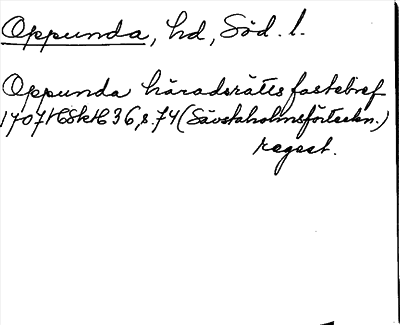 Oppunda, hd, Söd. l.
Oppunda häradsrätts fastebref
1707 HSkH 36, s. 74 (Sävstaholmsförteckn.)
regest.